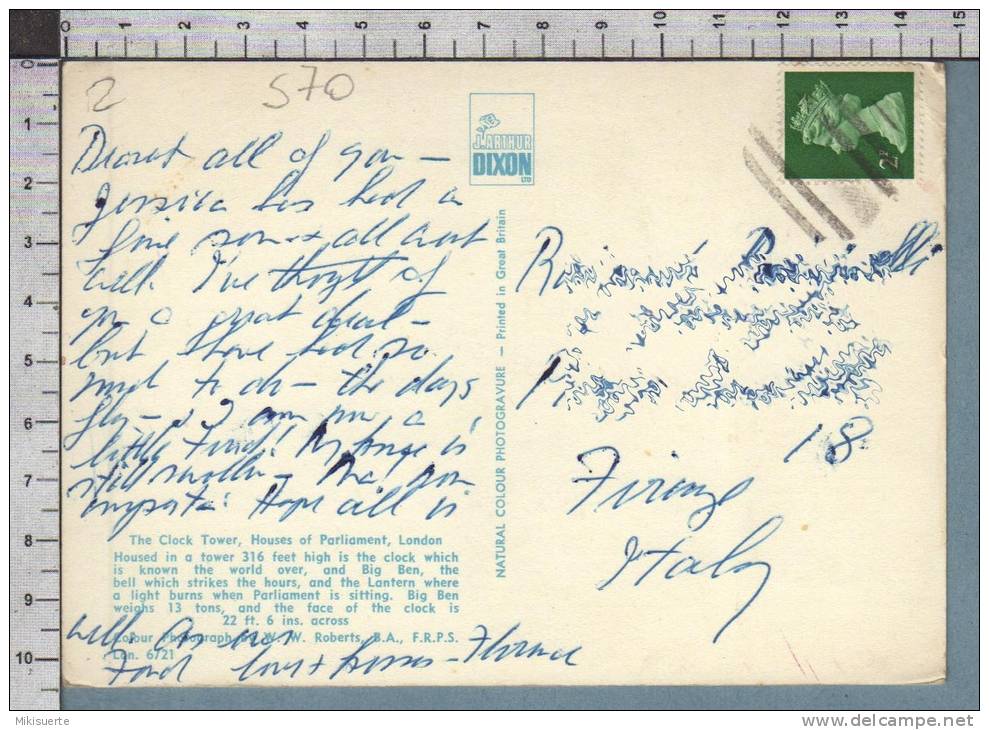 2
570
Dearest all of you —
Jessica has had a
fine son + all went
well. I've thought of
you a great deal —
but have had so
much to do — the days
fly — & I am now a
little tired! My hanges is
still swollen — Ma non
importa! Hope all is
well. As ever
Fond love + kisses — Florence
DALE
J. ARTHUR
DIXON
LTD
NATURAL COLOUR PHOTOGRAVURE — Printed in Great Britain
The Clock Tower, Houses of Parliament, London
Housed in a tower 316 feet high is the clock which
is known the world over, and Big Ben, the
bell which strikes the hours, and the Lantern where
a light burns when Parliament is sitting. Big Ben
weighs 13 tons, and the face of the clock is
22 ft. 6 ins. across
Colour Photograph by W. W. Roberts, B.A., F.R.P.S.
Lon. 6721
18
Firenze
Italy
0 1 2 3 4 5 6 7 8 9 10 11 12 13 14 15
0 1 2 3 4 5 6 7 8 9 10
Mikisuerte
www.delcampe.net